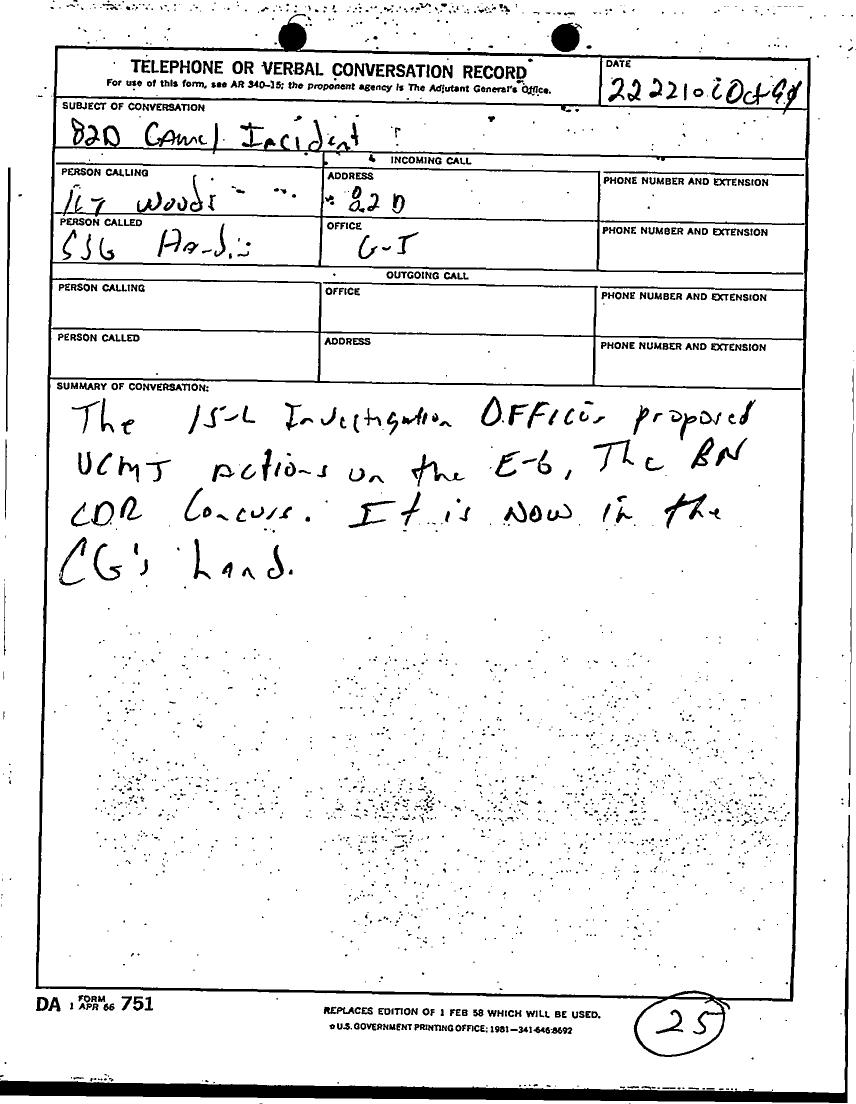 TELEPHONE OR VERBAL CONVERSATION RECORD
For use of this form, see AR 340-15; the proponent agency is The Adjutant General's Office.
DATE
222210 Oct 90
SUBJECT OF CONVERSATION
82D Camel Incident
INCOMING CALL
PERSON CALLING
ADDRESS
PHONE NUMBER AND EXTENSION
Woods
82D
PERSON CALLED
OFFICE
PHONE NUMBER AND EXTENSION
SSG
G-1
OUTGOING CALL
PERSON CALLING
OFFICE
PHONE NUMBER AND EXTENSION
PERSON CALLED
ADDRESS
PHONE NUMBER AND EXTENSION
SUMMARY OF CONVERSATION:
The 15-6 Investigation Officer proposed
UCMJ actions on the E-6, The BN
CDR Concurs. It is now in the
CG's hand.
DA FORM 751
1 APR 66
REPLACES EDITION OF 1 FEB 58 WHICH WILL BE USED.
U.S. GOVERNMENT PRINTING OFFICE: 1981-341-646:8692
25